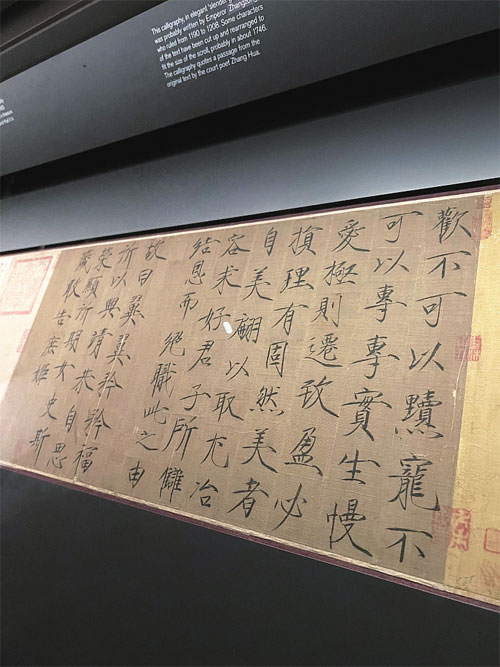 The calligraphy, in elegant 'slender
was probably written by Emperor Zhangzong
who ruled from 1190 to 1208. Some characters
of the text have been cut up and rearranged to
fit the size of the scroll, probably in about 1746.
The calligraphy quotes a passage from the
original text by the court poet Zhang Hua.
歡不可以黷寵不
可以專專實生慢
愛極則遷致盈必
損理有固然美者
自美翩以取尤冶
容求好君子所讎
結恩而絕職此之由
故曰翼翼矜矜福
所以興靖恭自思
榮顯所期女史斯
箴敢告庶姬